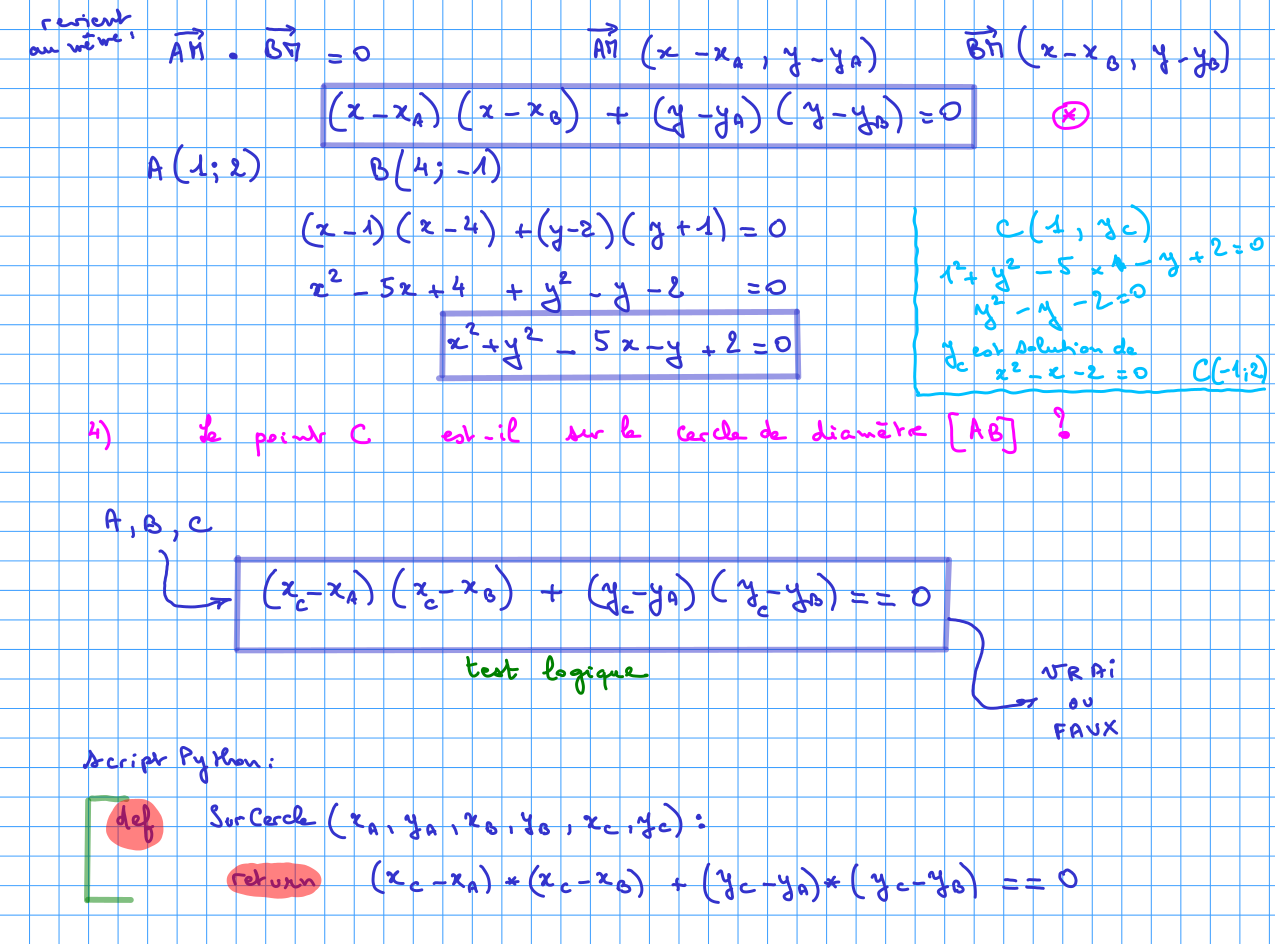 revient
au même :
AM⃗ . BM⃗ = 0 AM⃗ (x - x_A , y - y_A) BM⃗ (x - x_B , y - y_B)
(x - x_A) (x - x_B) + (y - y_A) (y - y_B) = 0 *
A(1 ; 2) B(4 ; -1)
(x - 1) (x - 4) + (y - 2) (y + 1) = 0
x² - 5x + 4 + y² - y - 2 = 0
x² + y² - 5x - y + 2 = 0
C(1 , y_C)
1² + y² - 5 × 1 - y + 2 = 0
y² - y - 2 = 0
y_C est solution de
x² - x - 2 = 0 C(-1 ; 2)
4) Le point C est-il sur le cercle de diamètre [AB] ?
A , B , C
(x_C - x_A) (x_C - x_B) + (y_C - y_A) (y_C - y_B) == 0
test logique
VRAi
ou
FAUX
Script Python :
def SurCercle (x_A , y_A , x_B , y_B , x_C , y_C) :
return (x_C - x_A) * (x_C - x_B) + (y_C - y_A) * (y_C - y_B) == 0